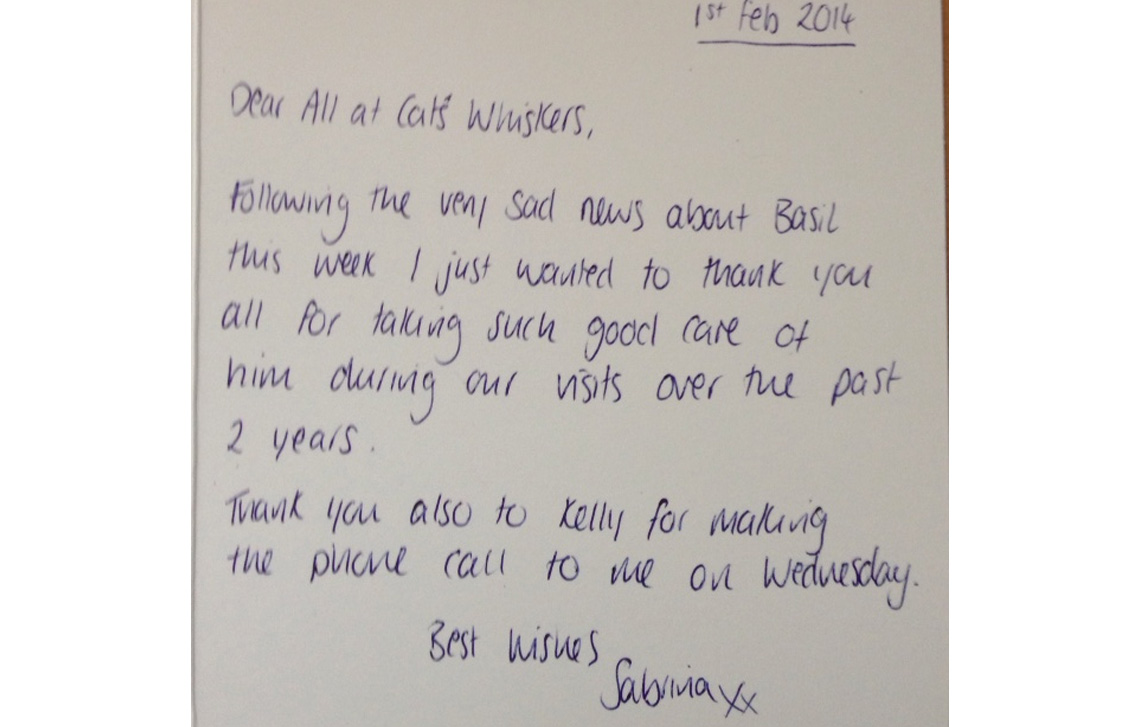 1st Feb 2014
Dear All at Cat's Whiskers,
Following the very sad news about Basil
this week I just wanted to thank you
all for taking such good care of
him during our visits over the past
2 years.
Thank you also to Kelly for making
the phone call to me on Wednesday.
Best Wishes
Sabrina xx